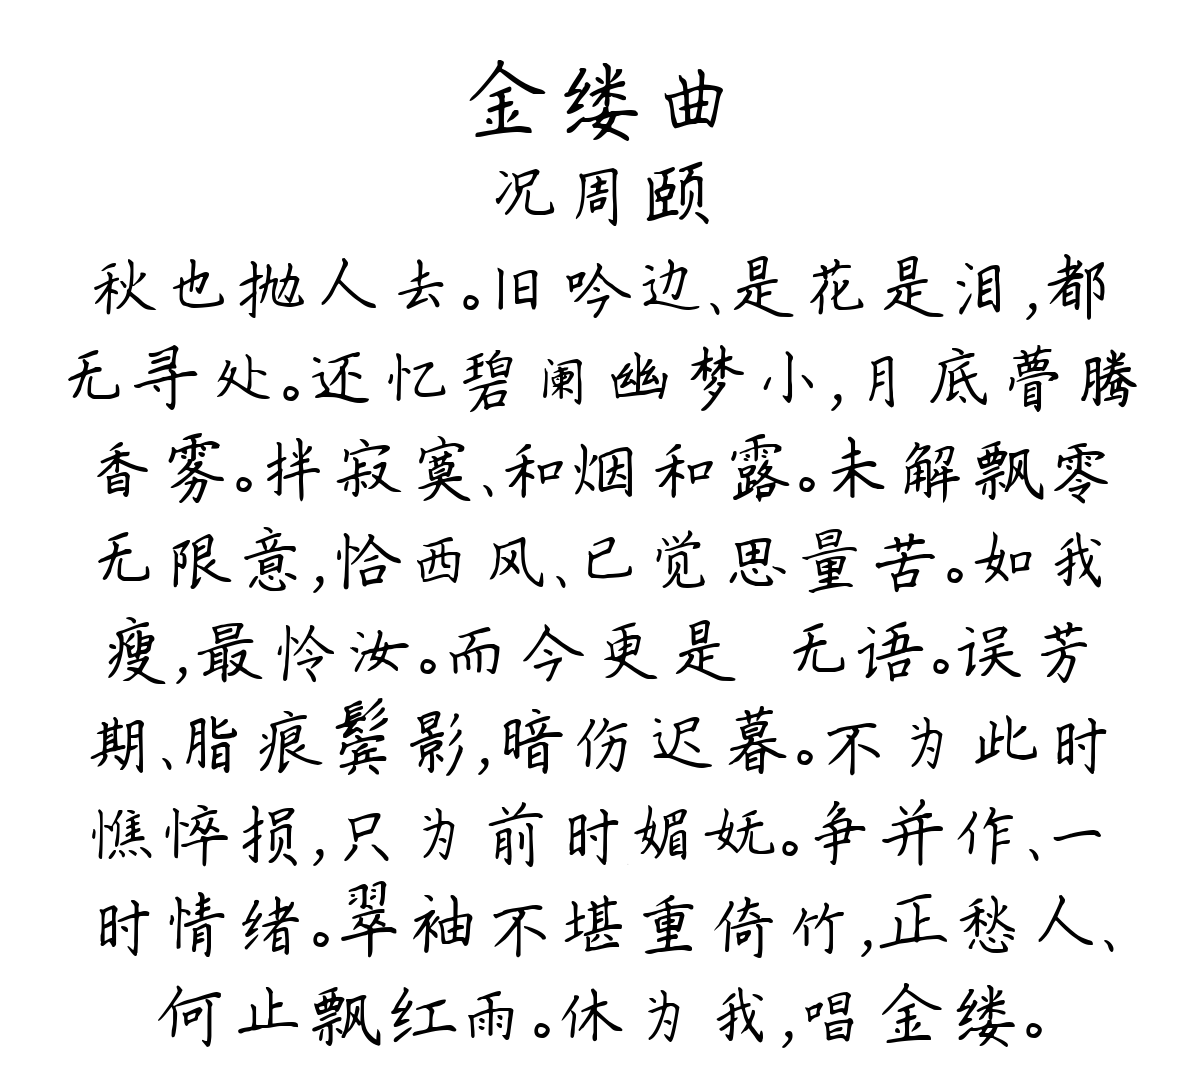 金缕曲
况周颐
秋也抛人去。旧吟边、是花是泪,都
无寻处。还忆碧阑幽梦小,月底瞢腾
香雾。拌寂寞、和烟和露。未解飘零
无限意,恰西风、已觉思量苦。如我
瘦,最怜汝。而今更是 无语。误芳
期、脂痕鬓影,暗伤迟暮。不为此时
憔悴损,只为前时媚妩。争并作、一
时情绪。翠袖不堪重倚竹,正愁人、
何止飘红雨。休为我,唱金缕。